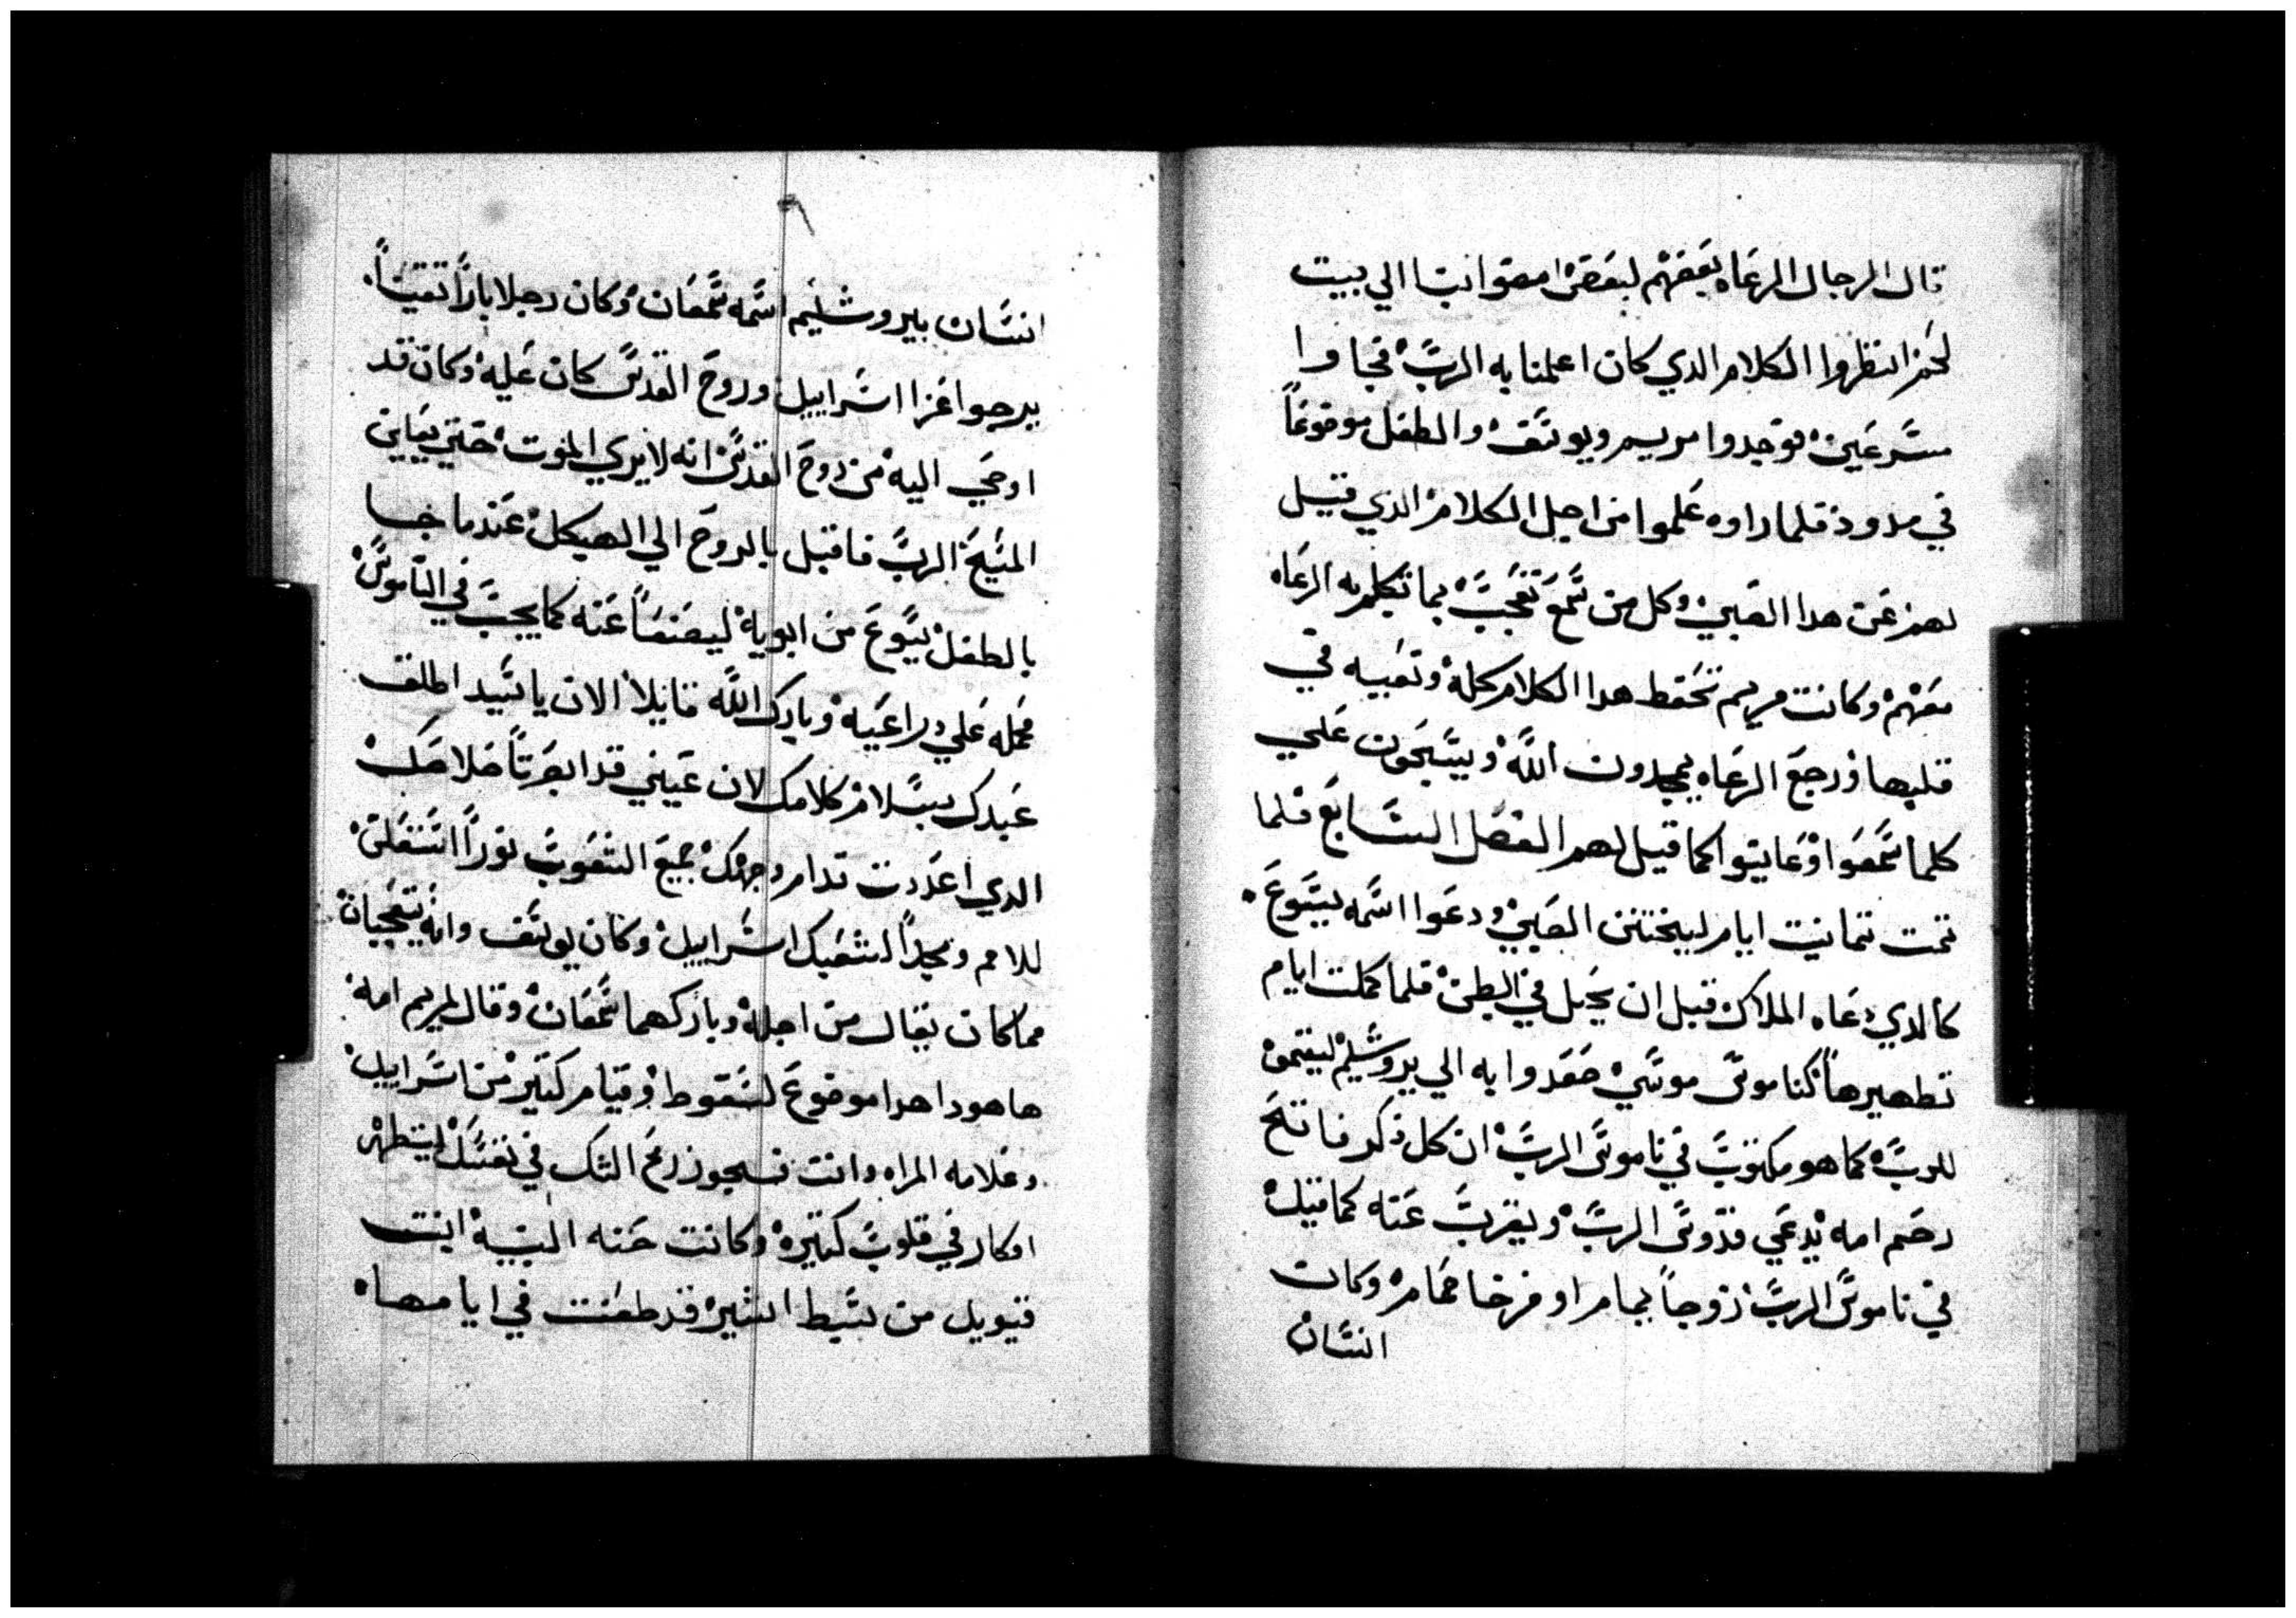 قال الرجال الرعاه بعضهم لبعض امضوا بنا الي بيت
لحم انظروا الكلام الدي كان اعلمنا به الرب فجاوا
مسرعين فوجدوا مريم ويوسف والطفل موضوعاً
في مدود فلما راوه علموا من اجل الكلام الدي قيل
لهم عن هدا الصبي وكل من سمع تعجب بما تكلم به الرعاه
معهم وكانت مريم تحفط هدا الكلام كله وتعبيه في
قلبها ورجع الرعاه يمجدون الله ويسبحون علي
كلما سمعوا وعاينوا كما قيل لهم الفصل السابع فلما
تمت تمانيت ايام ليختنن الصبي ودعوا اسمه يسوع
كالدي دعاه الملاك قبل ان يحبل في البطن فلما كملت ايام
تطهيرها كناموس موسي صعدوا به الي يروشليم ليقيموه
للرب كما هو مكتوب في ناموس الرب ان كل ذكر فاتح
رحم امه يدعي قدوس الرب ويقرب عنه كما قيل
في ناموس الرب زوجاً يمام او فرخا حمام وكان
انسان
انسان بيروشليم اسمه سمعان وكان رجلا باراً تقياً
يرجوا عزا اسراييل وروح القدس كان عليه وكان قد
اوحي اليه من روح القدس انه لا يري الموت حتي يعاين
المسيح الرب فاقبل بالروح الي الهيكل عندما جا
بالطفل يسوع من ابويه ليصنعا عنه كما يجب في الناموس
فحمله علي دراعيه وبارك الله قايلا الان يا سيد اطلق
عبدك بسلام كلامك لان عيني قد ابصرتا خلاصك
الدي اعددت قدام وجهك جميع الشعوب نوراً استعلن
للامم ومجداً لشعبك اسراييل وكان يوسف وامه يتعجبان
مما كان يقال من اجله وباركهما سمعان وقال لمريم امه
ها هودا هدا موضوع لسقوط وقيام كتير من اسراييل
وعلامه المراه وانت فسيجوز رمح الشك في نفسك ليتطهر
افكار في قلوب كتيره وكانت حنه النبيه ابنت
فنويل من سبط اشير قد طعنت في ايامها